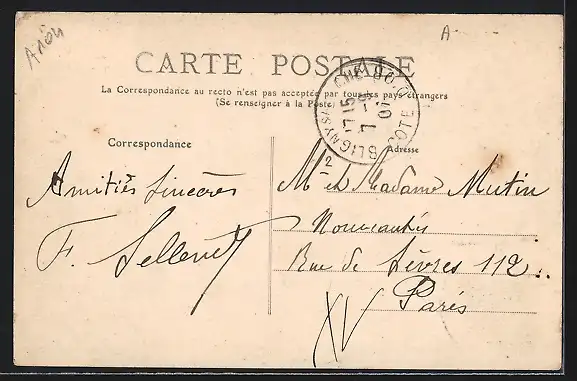 A
CARTE POSTALE
La Correspondance au recto n'est pas acceptée par tous les pays étrangers
(Se renseigner à la Poste)
BLIGNY-S/
CHE
CÔTE D'O
17-15
7
07
Correspondance
Adresse
Amitiés sincères
F.
Mr et Madame Mutin
Nouveautés
Rue de Sèvres 112
Paris
XV